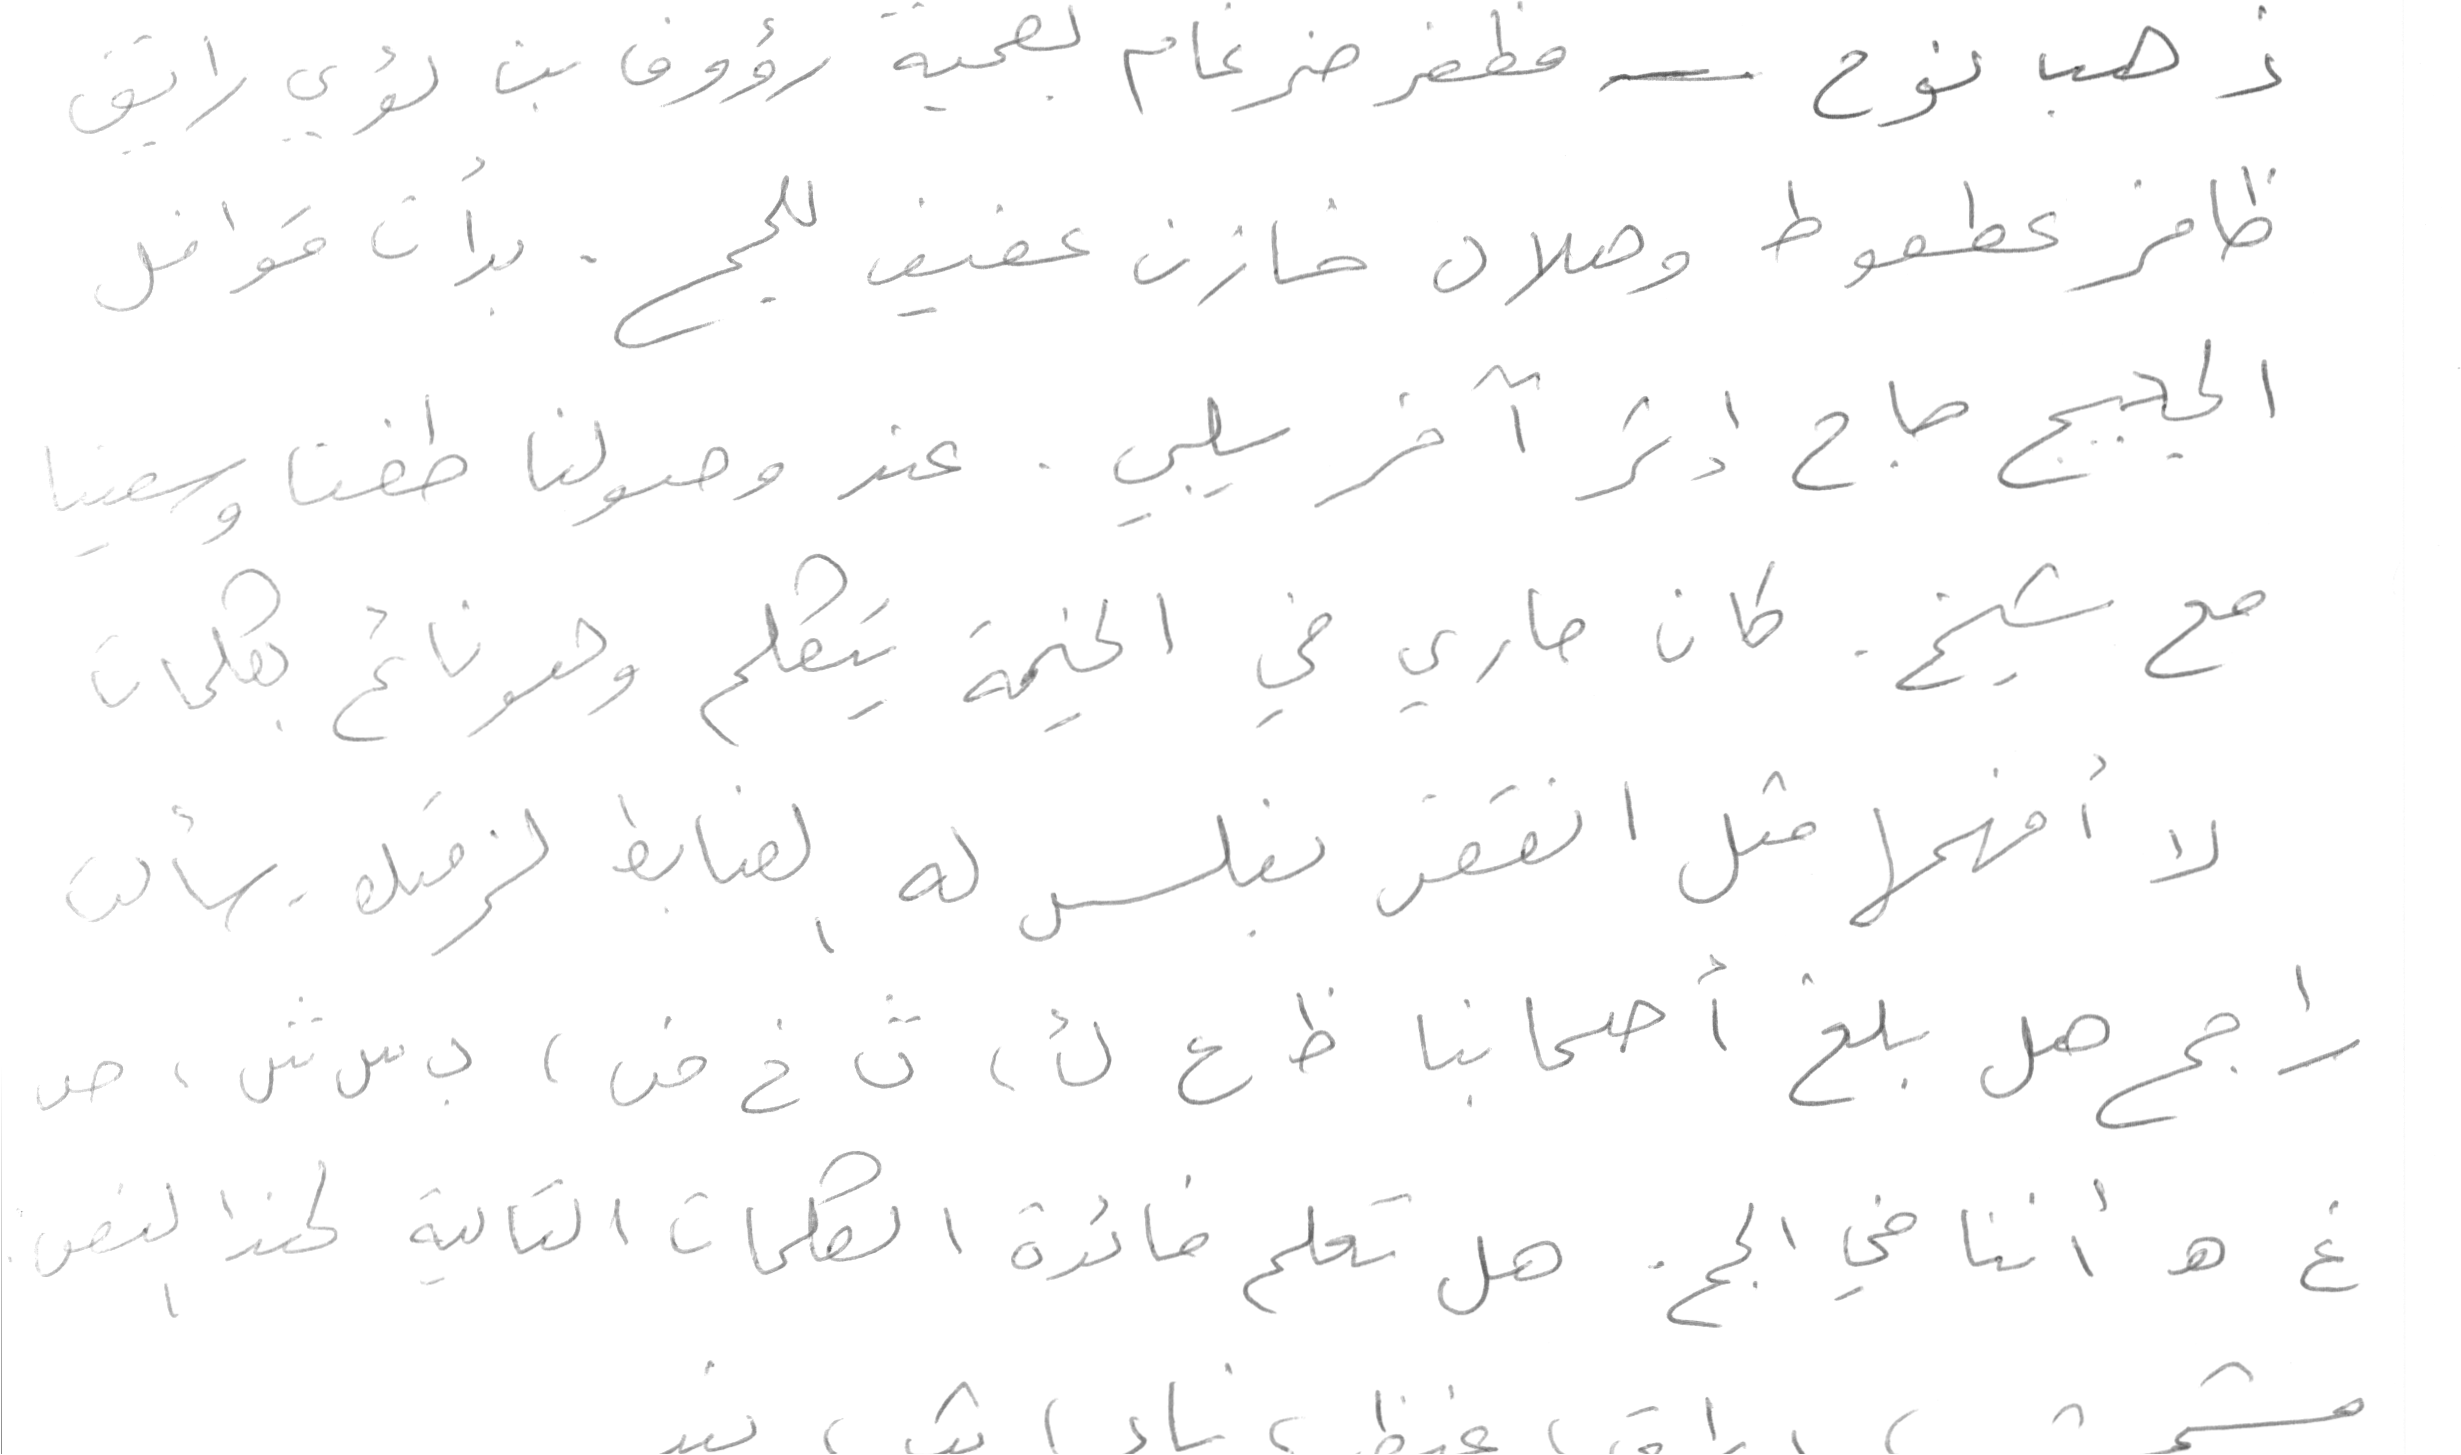 ذهب نوح مظفر ضرغام بصحبة رؤوف بن لؤي رايق
ظافر عطعوط وهلال خازن عفيف للحج . بدأت قوافل
الحجيج حاج إثر آخر سلبي . عند وصولنا طفنا وسعينا
مع شيخ . كان جاري في الخيمة يتكلم وهو نائم بكلمات
لا أفهمها مثل انققق نفلس له الضابط لزملك . سألت
راجح هل بلغ أصحابنا ظ ع ك ، ث خ ض ، ب س ش ، ص
غ هـ أننا في الحج . هل تعلم فائدة الكلمات التالية لهذا النص :